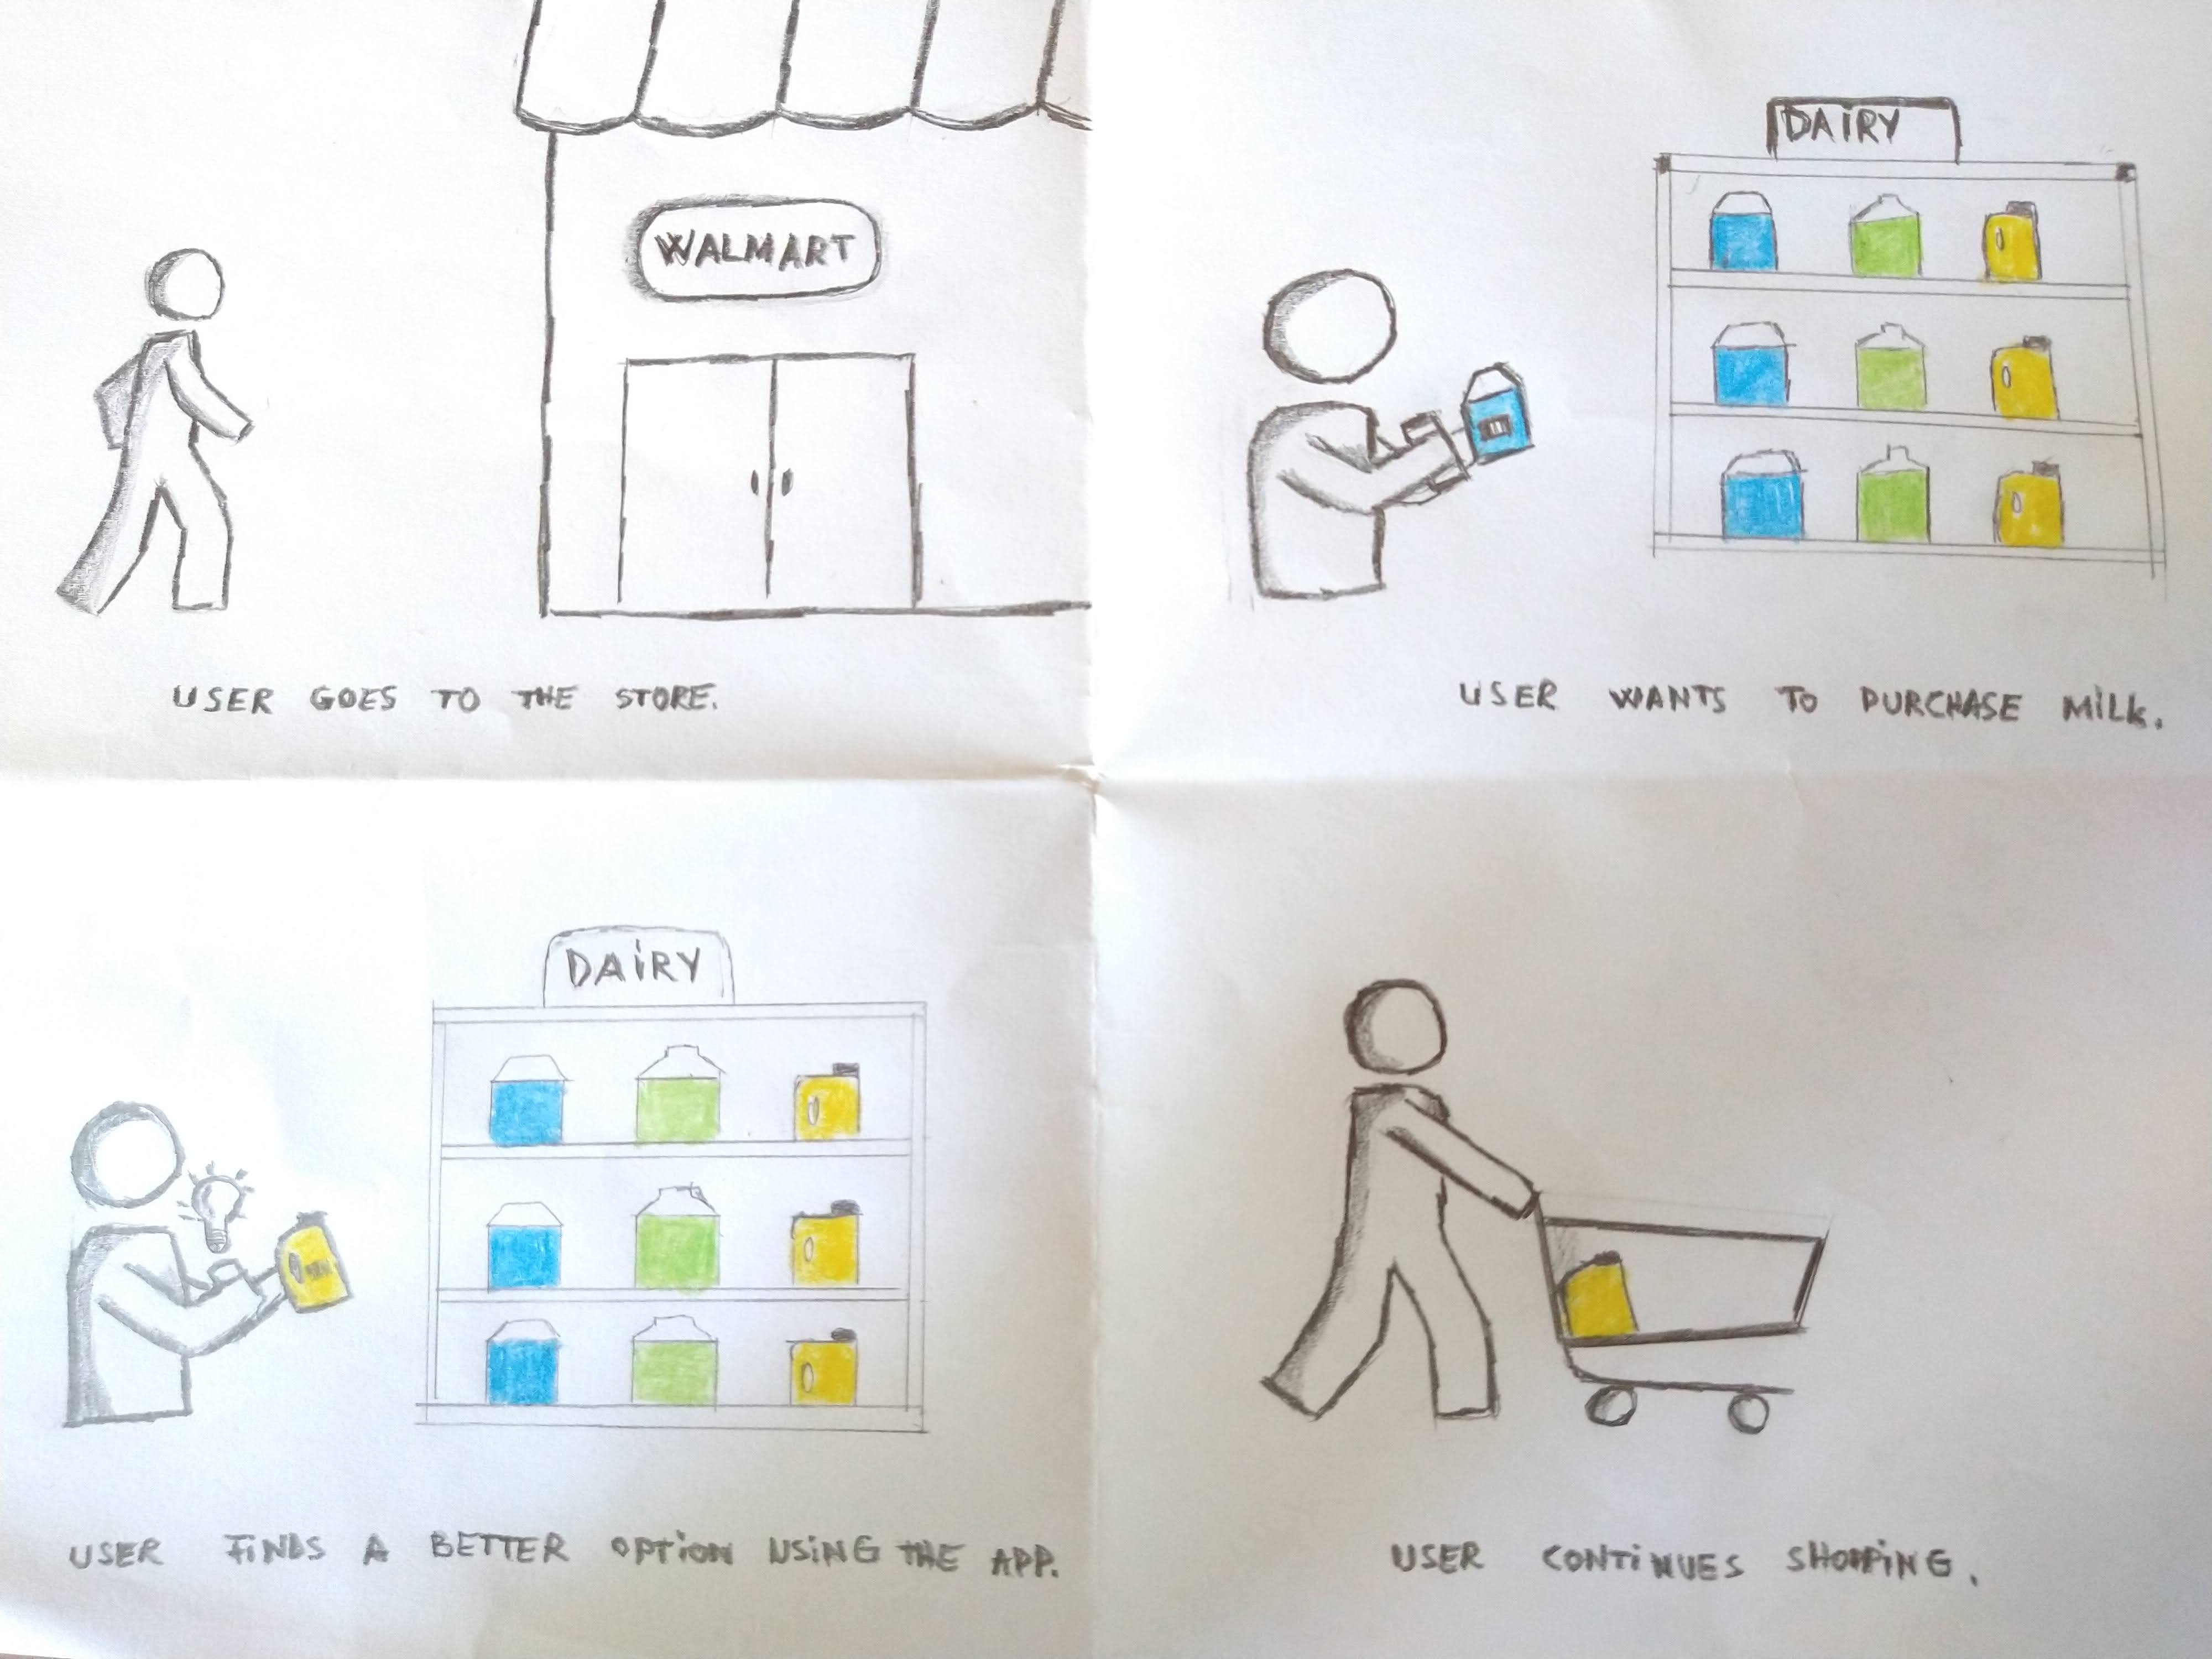 WALMART
USER GOES TO THE STORE.
DAiRY
USER WANTS TO PURCHASE MiLK.
DAiRY
USER FiNDS A BETTER OPTiON USiNG THE APP.
USER CONTiNUES SHOPPiNG.